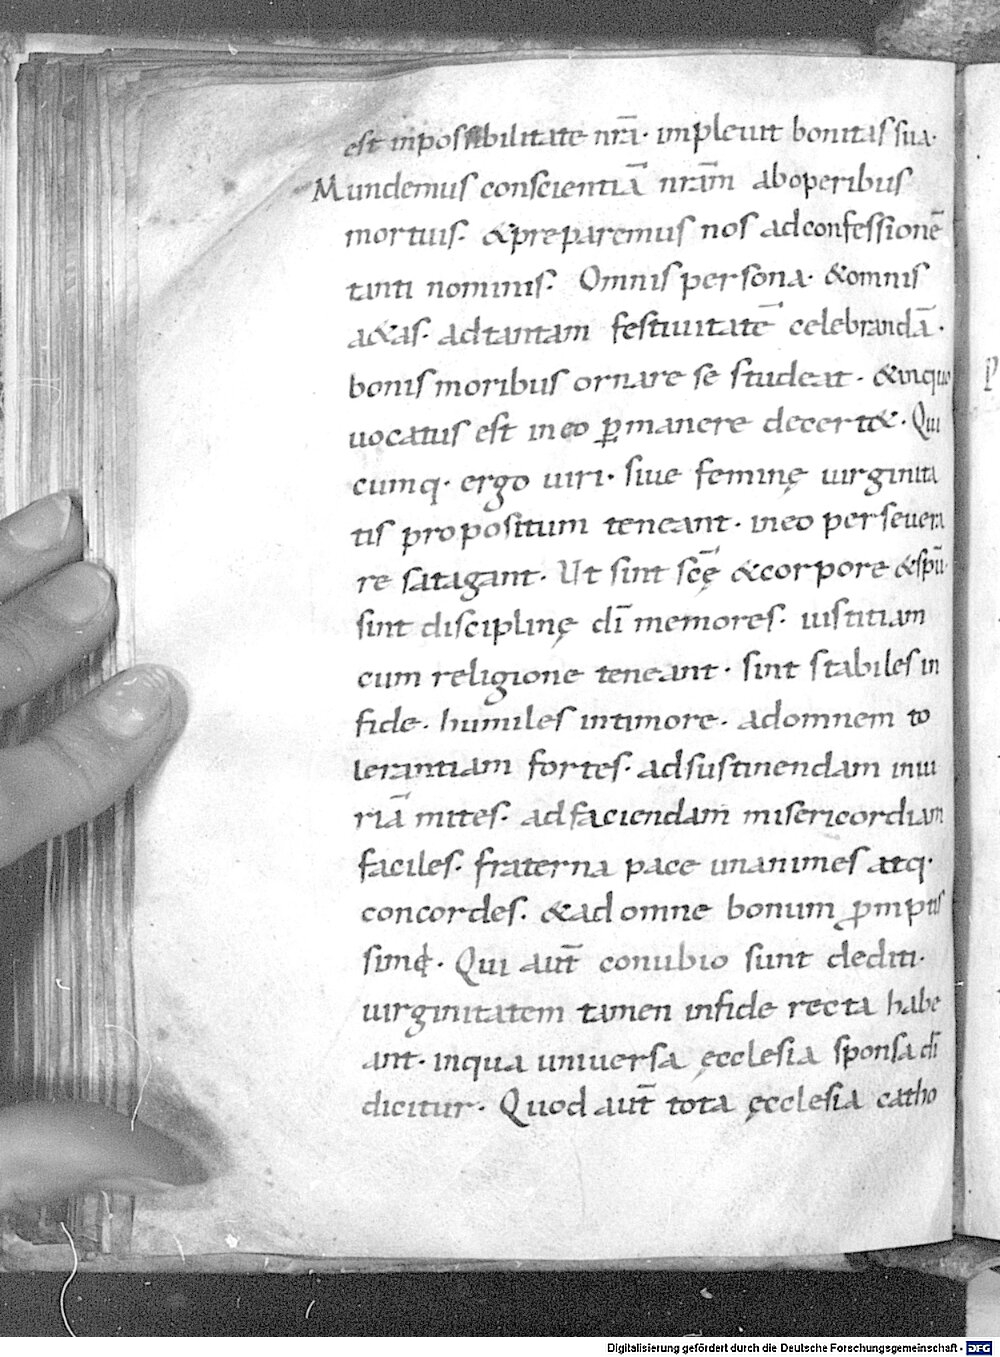 est inpossibilitate nrā· impleuit bonitas sua·
Mundemus conscientiā nrām aboperibus
mortuis· &preparemus nos adconfessionē
tanti nominis· Omnis persona· &omnis
a&as· adtantam festiuitatē celebrandā·
bonis moribus ornare se studeat· &inquo
uocatus est ineo ꝑmanere decert&· Qui
cumq· ergo uiri· siue feminę uirginita
tis propositum teneant· ineo perseuera
re satagant· Ut sint scę̄ &corpore &spū·
sint disciplinę dī memores· iustitiam
cum religione teneant· sint stabiles in
fide· humiles intimore· adomnem to
lerantiam fortes· adsustinendam iniu
riā mites· adfaciendam misericordiam
faciles· fraterna pace unanimes atq·
concordes· &ad omne bonum ꝓmptis
simę· Qui aut̄ conubio sunt dediti·
uirginitatem tamen infide recta habe
ant· inqua uniuersa ęcclesia sponsa dī
dicitur· Quod aut̄ tota ęcclesia catho
Digitalisierung gefördert durch die Deutsche Forschungsgemeinschaft - DFG